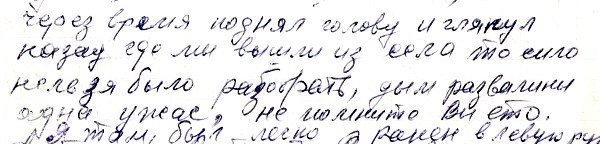 через время поднял голову и глянул
назад где мы вышли из села то село
нельзя было разобрать, дым развалини
одна ужас, не помните Вы ето.
Я там, был легко ранен в левую рук